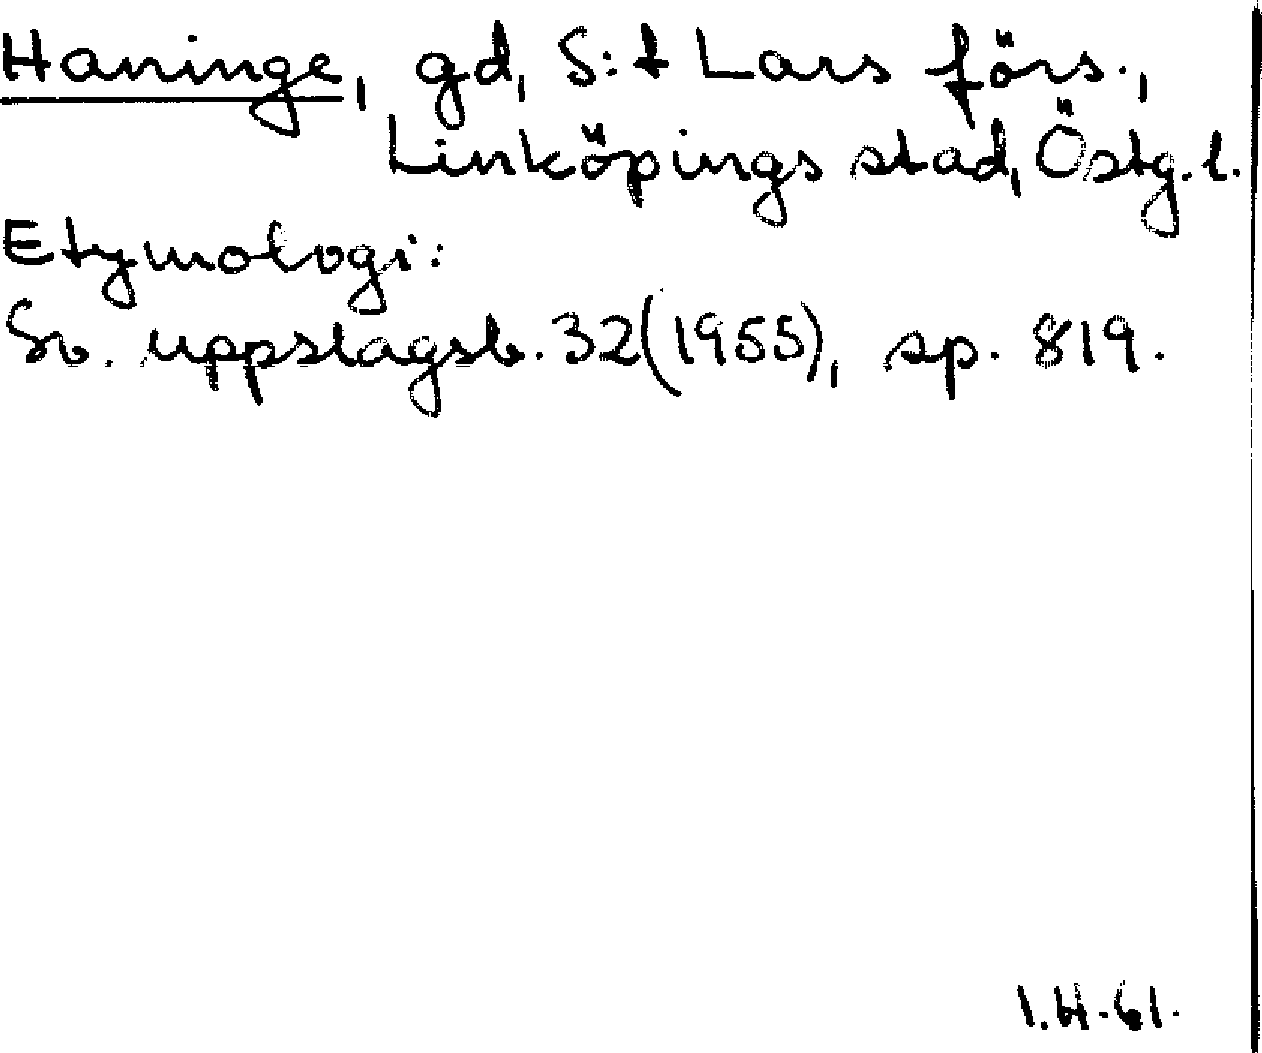 Haninge, gd, S:t Lars förs.,
Linköpings stad, Östg. l.
Etymologi:
Sv. uppslagsb. 32 (1955), sp. 819.
I.H-61.